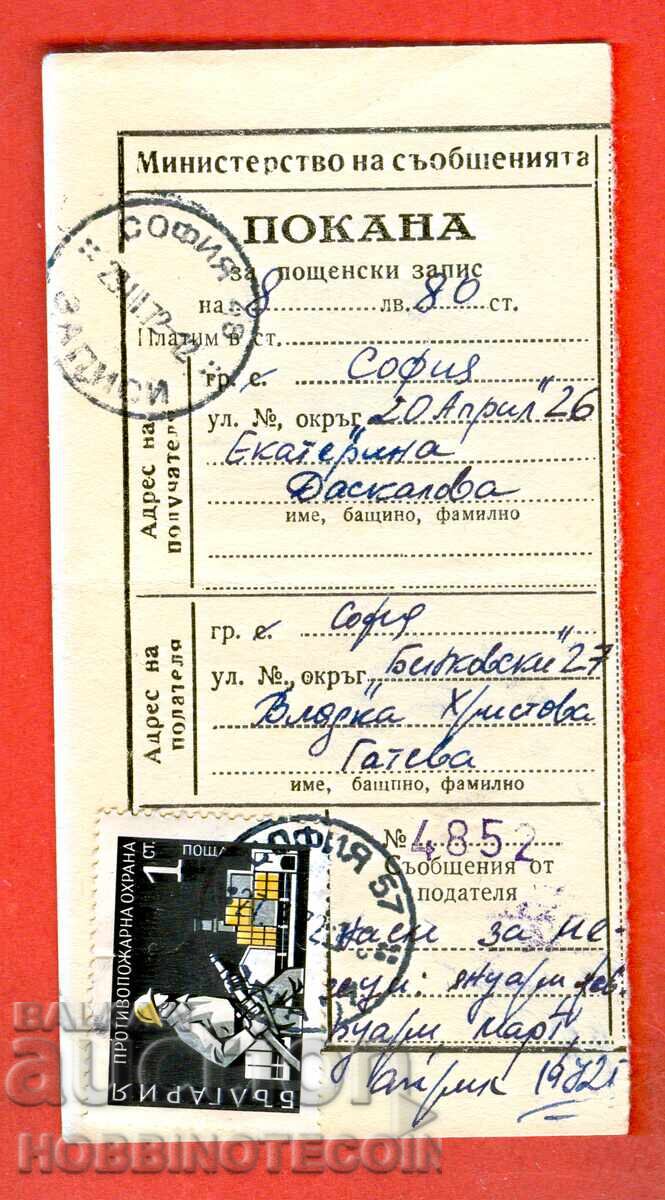 Министерство на съобщенията
ПОКАНА
за пощенски запис
на 8 лв. 80 ст.
Платим в ст.
СОФИЯ 48
ЗАПИСИ
Адрес на получателя
гр. с. София
ул. №, окръг "20 Април" 26
Екатерина
Даскалова
име, бащино, фамилно
Адрес на подателя
гр. с. София
ул. №, окръг 27
Христова
Гатева
име, бащино, фамилно
№ 4852
Съобщения от
подателя
СОФИЯ 57
за ме-
януари, фев-
руари, март,
април 1972
ПРОТИВОПОЖАРНА ОХРАНА
1 СТ.
ПОЩА
БЪЛГАРИЯ
BALKAN
auction
HOBBINOTECOIN